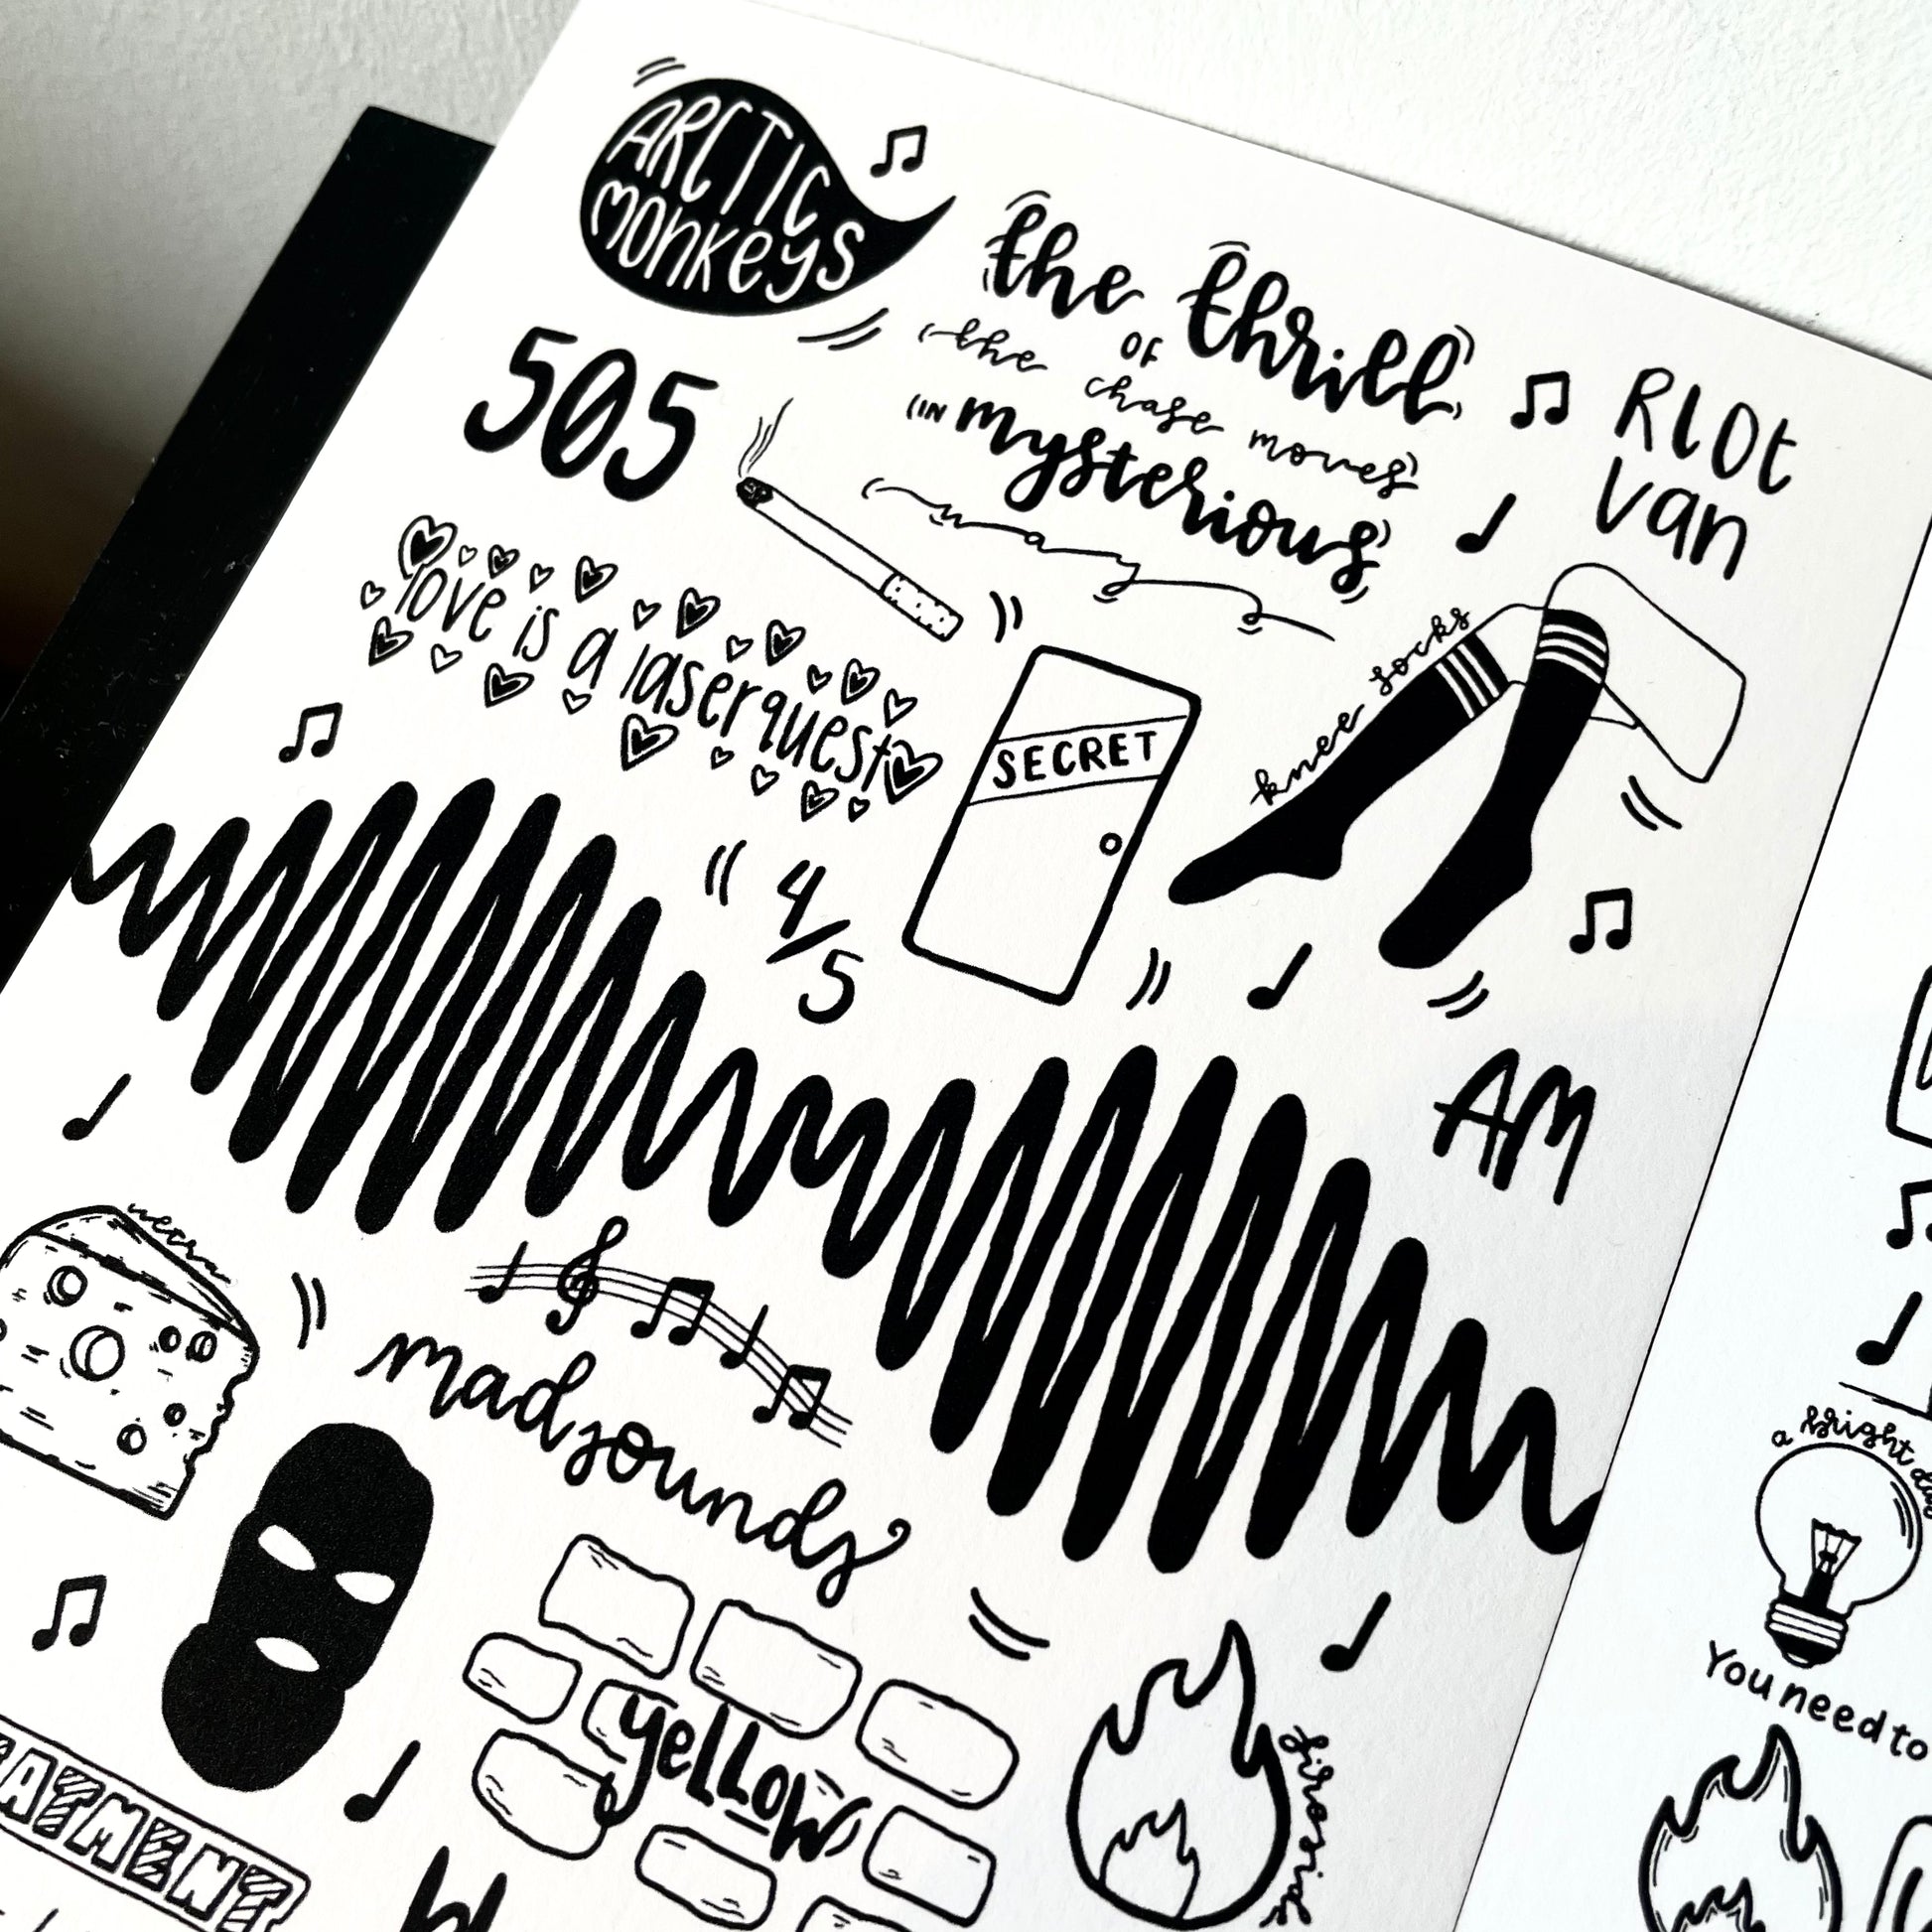 ARCTIC
MONKEYS
the thrill
OF
the chase moves
(IN mysterious
way
RIOt
Van
505
love is a laserquest
SECRET
knee socks
4/5
AM
mad sounds
yellow
fireside
ATMENT
a bright
You need to